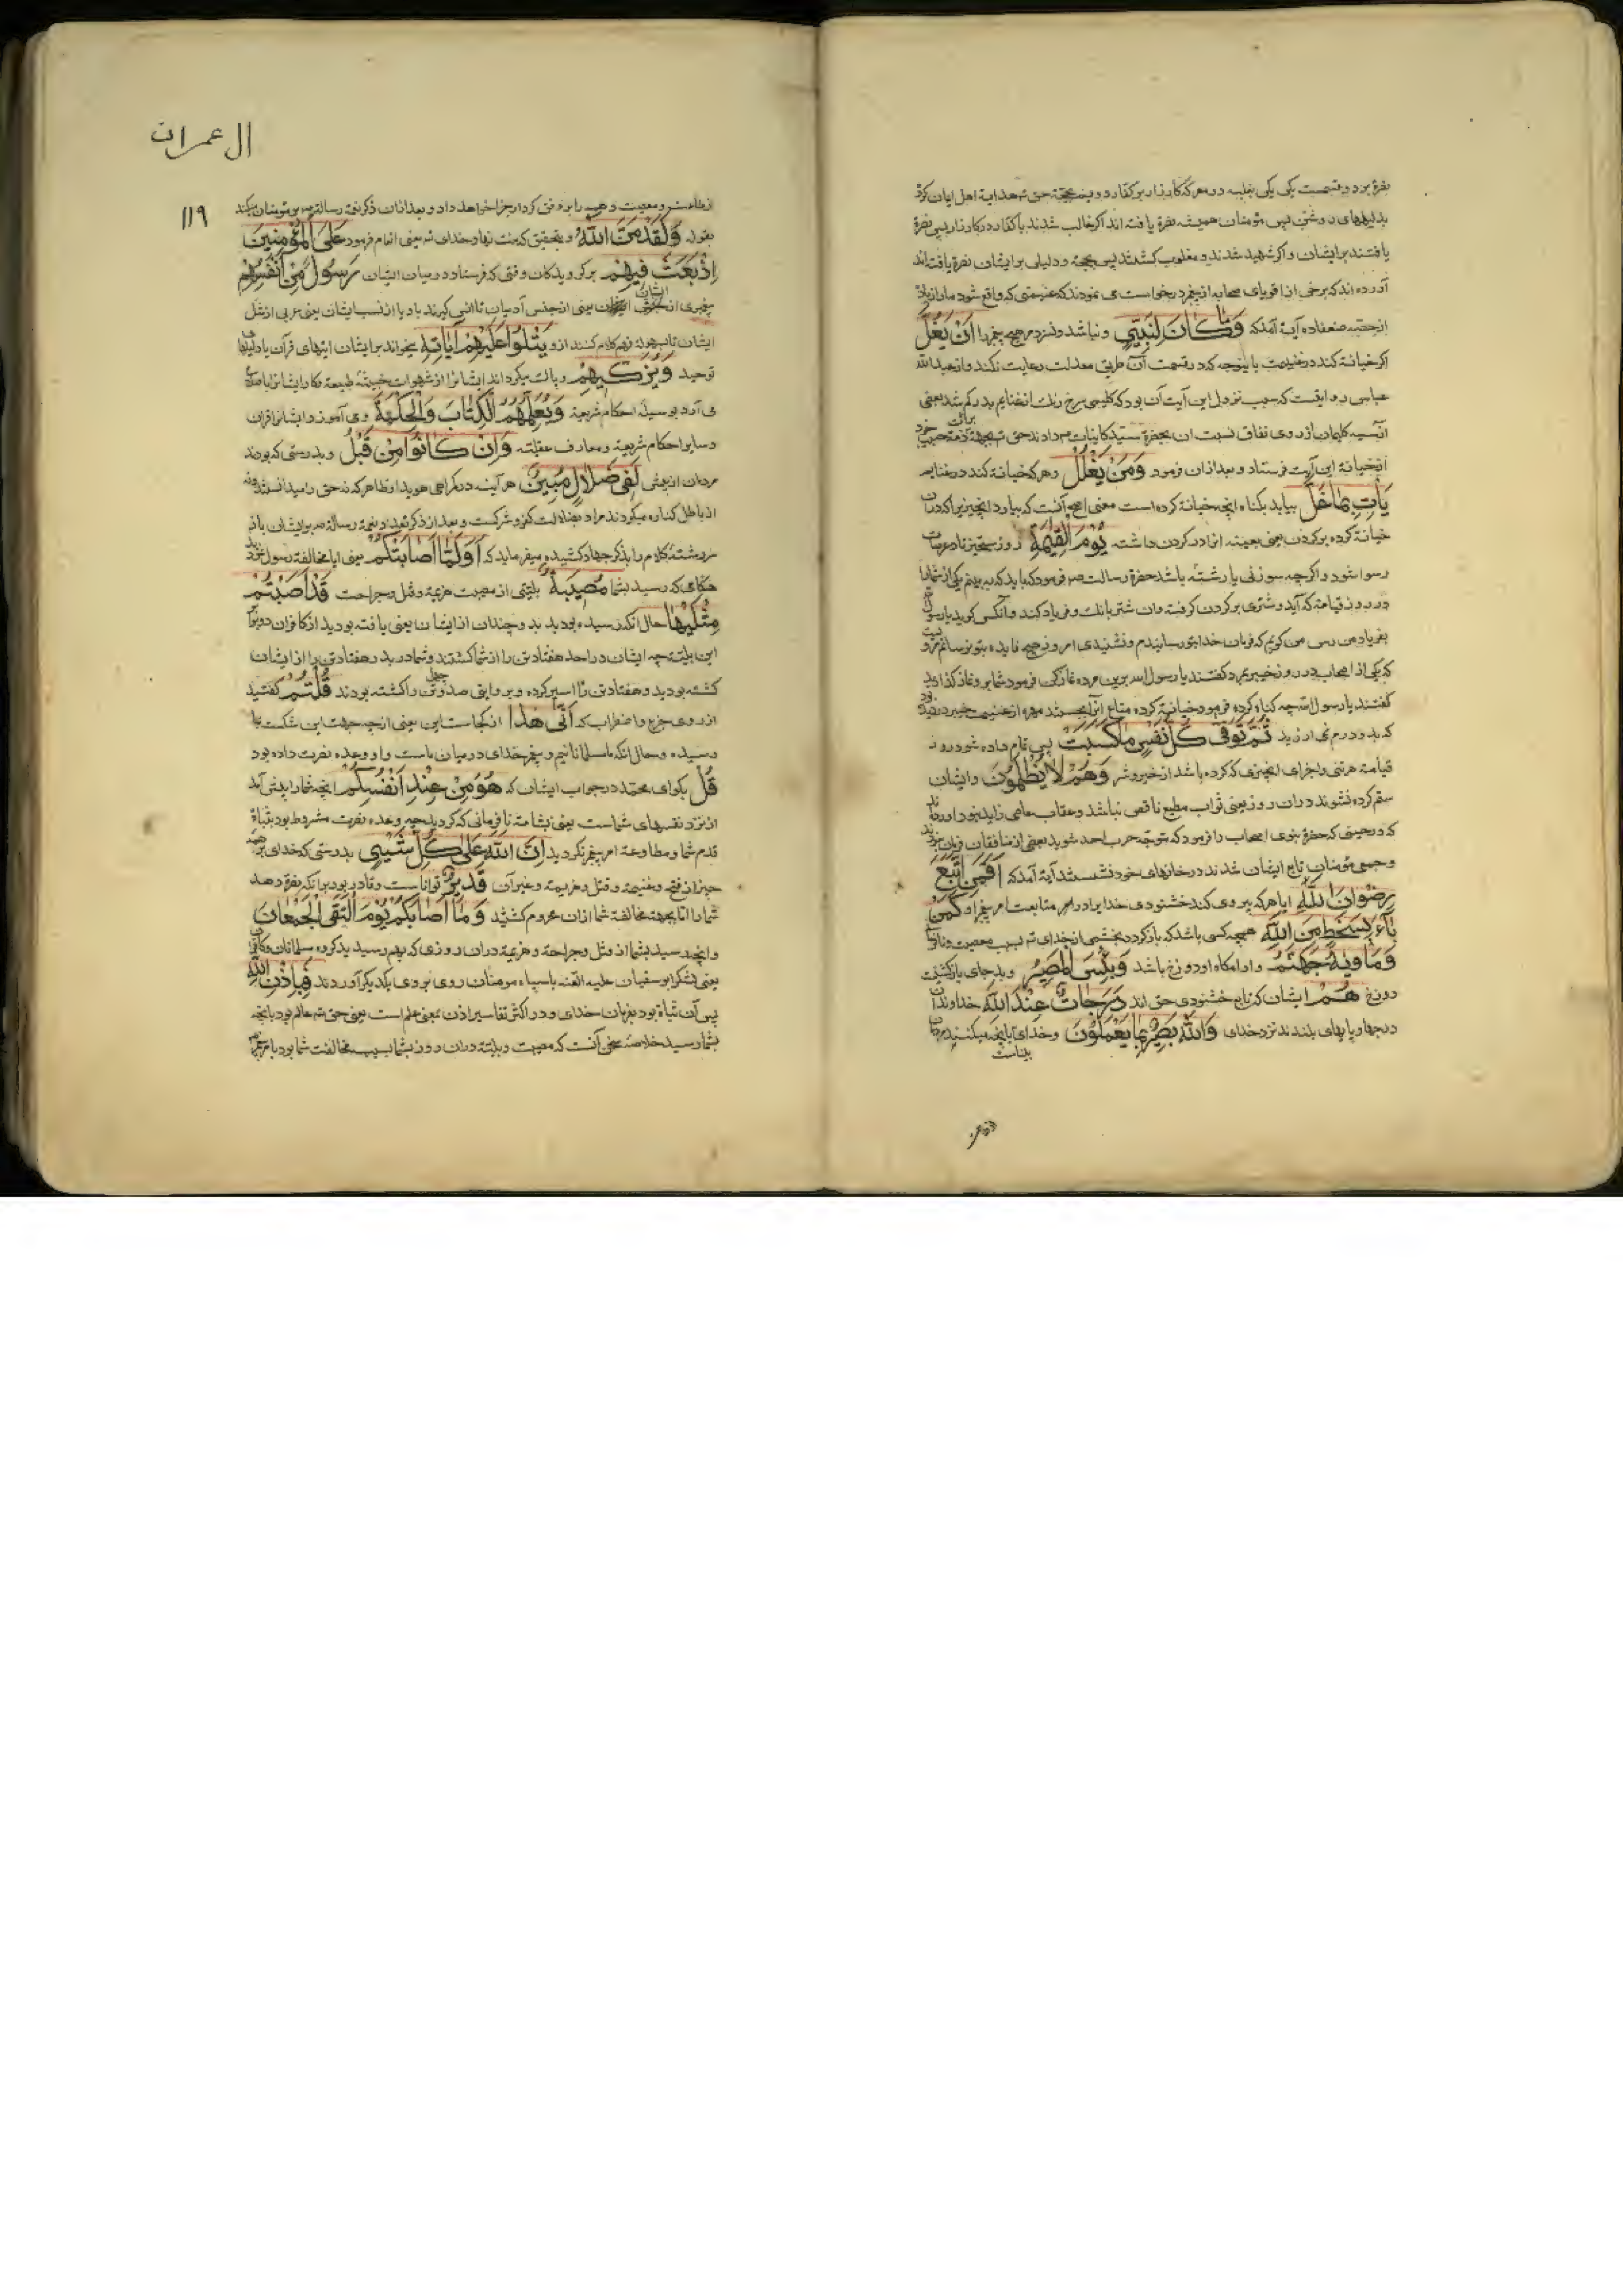 نصرة بود و قسمت یکی یکی بغلبه در معرکه کارزار بر کفار و دویم بحجة حق تع هدایة اهل ایمان کرد
بدلیلهای روشن پس مؤمنان همیشه نصرة یافته اند اگر غالب شدند با کفار در کارزار پس نصرة
یافتند بر ایشان و اگر شهید شدند و مغلوب کشتند پس بحجة و دلیلی بر ایشان نصرة یافته اند
آورده اند که برخی از اقویای صحابه از پیغمبر درخواست می نمودند که غنیمتی که واقع شود ما را زیاد
از حصه ضعفا ده آیة آمد که وَمَا كَانَ لِنَبِيٍّ و نباشد و نسزد مر هیچ پیغمبر را اَنْ يَغُلَّ
اکر خیانة کند در غنیمت باینوجه که در قسمت آن طریق معدلت رعایت نکند و از عبدالله
عباس روایتست که سبب نزول این آیت آن بود که کلیمی سرخ رنك از غنایم بدر کم شد بعضی
انخیانة این آیت فرستاد و بعد ازان فرمود وَمَنْ يَغْلُلْ و هر که خیانة کند در غنایم
يَأْتِ بِمَا غَلَّ بیاید بکناه انچه خیانة کرده است معنی اصح آنست که بیارد انچیز را که دران
خیانة کرده بر کردن یعنی بعینه انرا در کردن داشته يَوْمَ الْقِيٰمَةِ روز رستخیز تا در عرصات
رسوا شود و اگرچه سوزنی یا رشتهٔ باشد حضرة رسالت ص فرمود که باید که نه بینم یکی از شما را
در روز قیامة که آید و شتری بر کردن کرفته و ان شتر بانك و فریاد کند و آنکس کوید یا رسول
بفریاد من رس من کویم که فرمان خدا بتو رسانیدم و نشنیدی امروز هیچ فایده بتو نرسانم
که یکی از اصحاب در روز خیبر بمرد کفتند یا رسول الله برین مرده نماز کن فرمود شما برو نماز کذارید
کفتند یا رسول الله چه کناه کرده فرمود خیانة کرده متاع آنرا بجستند مهره از غنیمت خیبر
که بدو درم نمی ارزید ثُمَّ تُوَفّٰى كُلُّ نَفْسٍ مَا كَسَبَتْ پس تمام داده شود روز
قیامة هر تنی را جزای انچیزی که کرده باشد از خیر و شر وَهُمْ لَا يُظْلَمُونَ و ایشان
ستم کرده نشوند دران روز یعنی ثواب مطیع ناقص نباشد و عقاب عاصی زاید نبود
که در حینی که حضرة نبوی اصحاب را فرمود که متوجه حرب احد شوید بعضی از منافقان فرمان نبردند
و جمعی مؤمنان تابع ایشان شدند در خانهای خود نشستند آیة آمد که اَفَمَنِ اتَّبَعَ
رِضْوَانَ اللّٰهِ ایا هر که پیروی کند خشنودی خدایرا در امر متابعت امر پیغمبر او كَمَنْ
بَآءَ بِسَخَطٍ مِنَ اللّٰهِ همچه کسی باشد که باز کردد بخشمی از خدای تع بسبب معصیت
وَمَاْوٰيهُ جَهَنَّمُ و ارامکاه او دوزخ باشد وَبِئْسَ الْمَصِيرُ و بد جای بازکشتست
دوزخ هُمْ ایشان که تابع خشنودی حق اند دَرَجَاتٌ عِنْدَ اللّٰهِ خداوندان
درجها و پایهای بلندند نزد خدای وَاللّٰهُ بَصِيرٌ بِمَا يَعْمَلُونَ و خدای بانچه میکنند
بیناست
ال عمران
١١٩
از طاعت و معصیت و همه را بر وفق کردار جزا خواهد داد و بعد ازان ذکر نعمة رسالة بر مؤمنان میکند
بقوله وَلَقَدْ مَنَّ اللّٰهُ و بتحقیق که منت نهاد خدای تع یعنی انعام فرمود عَلَى الْمُؤْمِنِينَ
اِذْ بَعَثَ فِيهِمْ بر کرویدکان وقتی که فرستاد در میان ایشان رَسُولًا مِنْ اَنْفُسِهِمْ
پیغمبری از جنس ایشان یعنی از جنس آدمیان تا انس کیرند باو یا از نسب ایشان یعنی عربی از نسل
ایشان تا بسهولة فهم کلام کنند ازو يَتْلُوا عَلَيْهِمْ آيَاتِهِ بخواند بر ایشان ایتهای قرآن با دلیلهای
توحید وَيُزَكِّيهِمْ و پاك میکرداند ایشانرا از شهوات خبیثهٔ طبیعة
می آورد بوسیلهٔ احکام شریعة وَيُعَلِّمُهُمُ الْكِتَابَ وَالْحِكْمَةَ و می آموزد ایشانرا قران
و سایر احکام شریعة و معارف عقلیه وَاِنْ كَانُوا مِنْ قَبْلُ و بدرستی که بودند
مردمان از پیش لَفِى ضَلَالٍ مُبِينٍ هر آینه در کمراهی هویدا و ظاهر که نه حق را میدانستند و نه
از باطل کناره میکردند مراد بضلالت کفر و شرکست و بعد از ذکر نعمة رسالة بر ایشان باز
سر رشتهٔ کلام را بذکر جهاد کشیده میفرماید که اَوَلَمَّا اَصَابَتْكُمْ یعنی ایا مخالفة رسول کردید
هنکامی که رسید بشما مُصِيبَةٌ بلیتی از مصیبت هزیمة و قتل و جراحت قَدْ اَصَبْتُمْ
مِثْلَيْهَا حال انکه رسیده بودید بدو چندان از ایشان یعنی یافته بودید از کافران دو برابر
این بلیة چه ایشان در احد هفتاد تن را از شما کشتند و شما در بدر هفتاد تن را از ایشان
کشته بودید و هفتاد تن را اسیر کرده و بروایتی صد و چهل تن را کشته بودند قُلْتُمْ کفتید
از روی جزع و اضطراب که اَنّٰى هٰذَا از کجاست این یعنی از چه جهت این شکست بما
رسیده و حال انکه ما مسلمانانیم و پیغمبر خدای در میان ماست و او وعده نصرت داده بود
قُلْ بکو ای محمد در جواب ایشان که هُوَ مِنْ عِنْدِ اَنْفُسِكُمْ انچه شما را پیش آمد
از نزد نفسهای شماست یعنی بشامة نافرمانی که کردید چه وعده نصرت مشروط بود بثبات
قدم شما و مطاوعة امر پیغمبر نکردید اِنَّ اللّٰهَ عَلٰى كُلِّ شَيْءٍ بدرستی که خدای بر همه
چیز از فتح و غنیمة و قتل و هزیمة و غیر آن قَدِيرٌ تواناست و قادر بود بر انکه نصرة دهد
شما را اما بجهة مخالفة شما ازان محروم کشتید وَمَا اَصَابَكُمْ يَوْمَ الْتَقَى الْجَمْعَانِ
و انچه رسید بشما از قتل و جراحة و هزیمة دران روزی که بهم رسیدند دو کروه مسلمانان و کافران
یعنی لشکر ابوسفیان علیه اللعنه با سپاه مومنان روی بروی یکدیکر آوردند فَبِاِذْنِ اللّٰهِ
پس آن بود بفرمان خدای و در اکثر تفاسیر اذن بمعنی علم است یعنی حق تع عالم بود بانچه
بشما رسید خلاصهٔ سخن آنست که مصیبت و بلیة دران روز بشما بسبب مخالفت شما بود